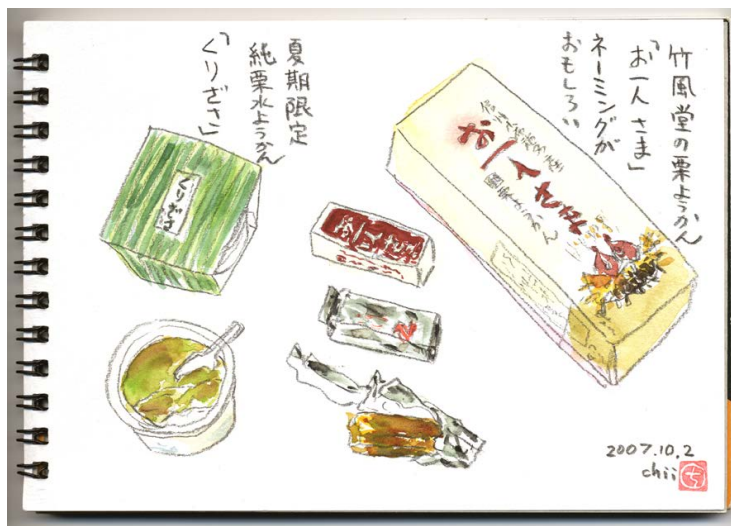 竹風堂の栗ようかん
「お一人さま」
ネーミングが
おもしろい
夏期限定
純栗水ようかん
「くりざさ」
くりざさ
お一人さま
栗ようかん
2007.10.2
chii